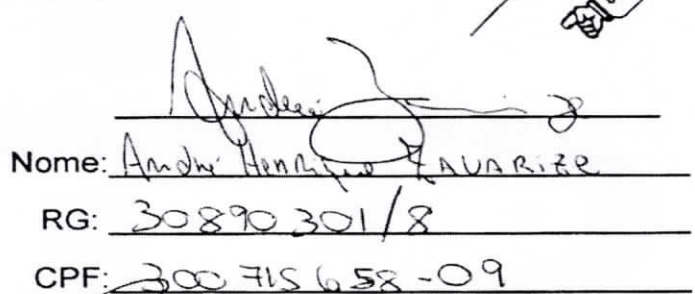 Nome: André Henrique ZAVARIZE
RG: 30890301/8
CPF: 300 715 658-09